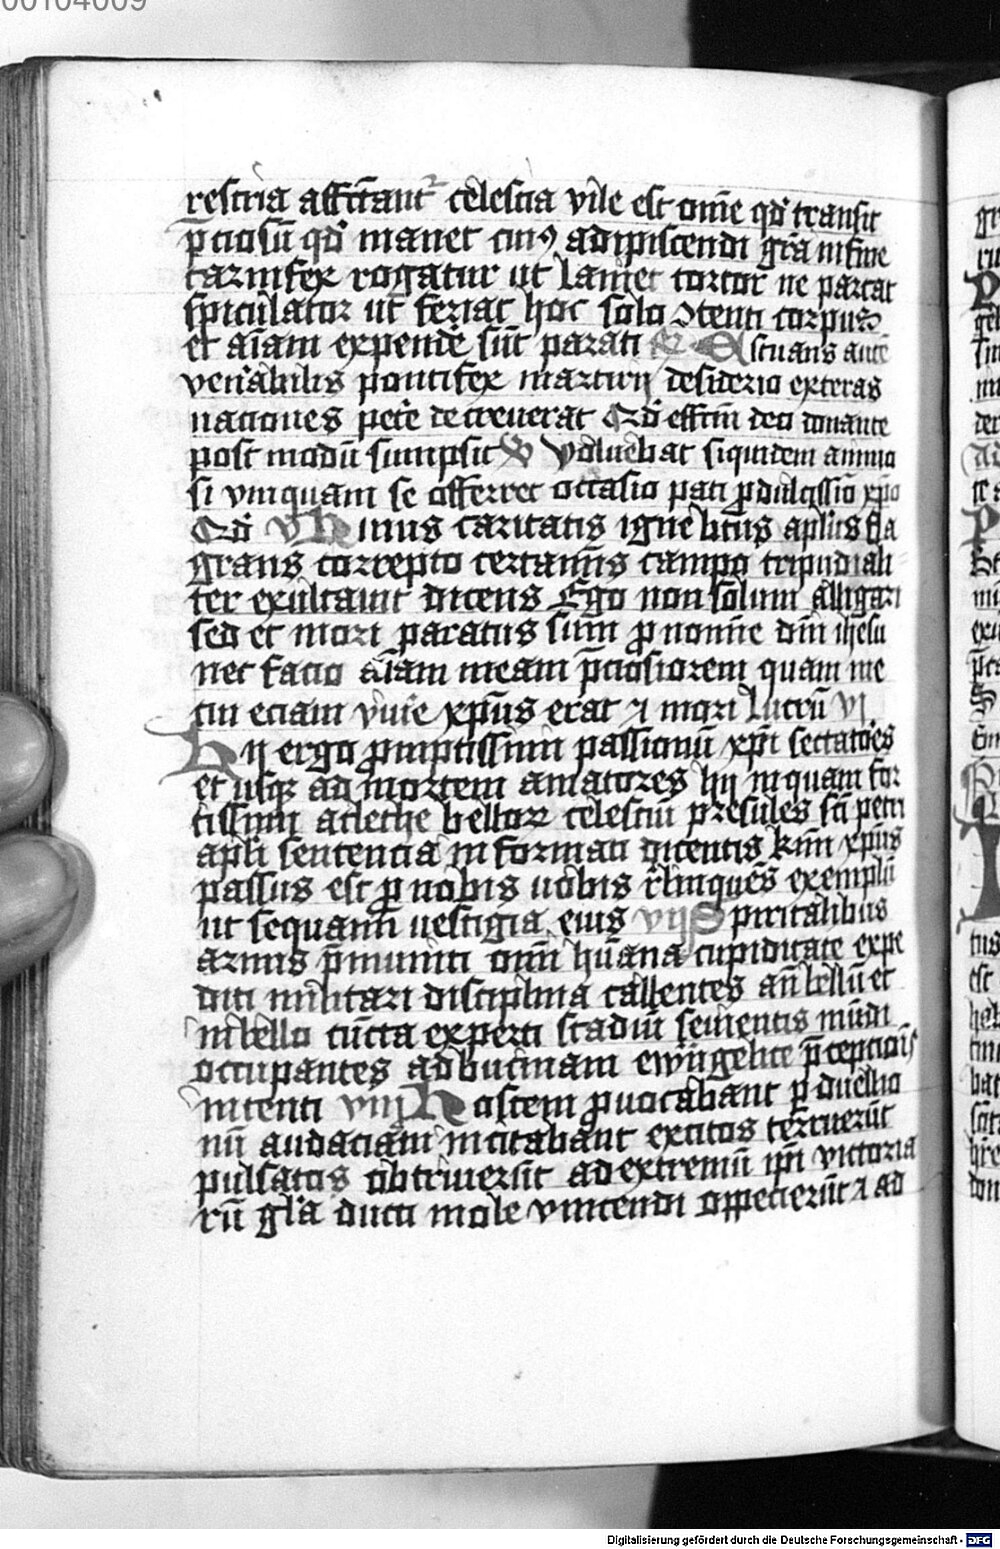 00104009
restria affectant᷑ celestia vile est om̄e qd̓ transit
p̄ciosū qd̓ manet cuiꝰ adipiscendi gr̄a in fine
carnifex rogatur ut laniet tortor ne parcat
spiculator ut feriat hoc solo ꝯtenti corpus
et aīam expende̓ sūt parati Estuans autē
ven̓abilis pontifex martirij desiderio exteras
naciones pete̓ decreuerat Qd̓ effcm̄ deo donante
post modū sumpsit v Voluebat siquidem animo
si vmquam se offerret occasio pati ꝓ dulcissīo xp̄o
Qd̓ vi Hinius caritatis igne btūs aplūs fla
grans correpto certamīs campo tripudiali
ter exultauit dicens Ego non solum alligari
sed et mori paratus sum ꝓ nomīe dn̄i ihesu
nec facio aīam meam p̄ciosiorem quam me
cui eciam viue̓ xpūs erat ⁊ mori lucrū vi
Hij ergo ꝓmptissimi passionū xp̄i sectatoēs
et usqꝫ ad mortem amatores hij inquam for
tissimi athlethe belloꝝ celestiū presules sc̄i petri
apli sentencia informati dicentis kmī xpūs
passus est ꝓ nobis uobis relinquēs exemplū
ut sequamī uestigia eius vij Spiritalibus
armis p̄muniti omī hūana cupiditate expe
diti militari disciplina callentes an̄ bellū et
in bello cūcta experti stadiū seuientis mūdi
occupantes ad bucinam ewūgelice p̄cepcionis
intenti viij Hostem ꝓuocabant ꝑ duellio
nū audaciam incitabant excitos ter̄ruerūt
pulsatos obtriuerūt ad extremū ip̄i victoria
rū gl̓a ducti mole vincendi oppecierūt ⁊ ad
Digitalisierung gefördert durch die Deutsche Forschungsgemeinschaft - DFG